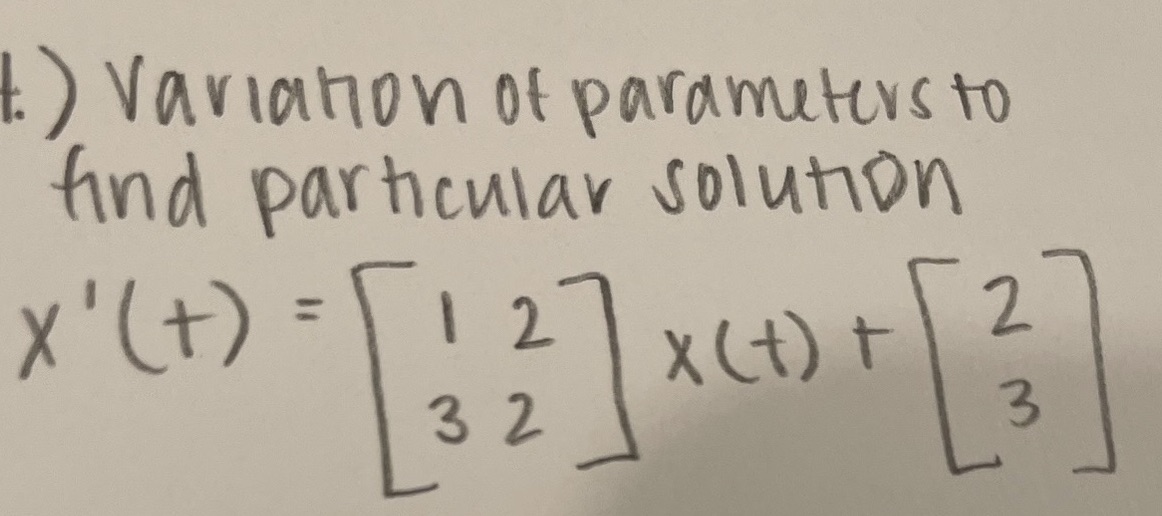 t.) Variation of parameters to
find particular solution
x'(t) = [1 2
3 2] x(t) + [2
3]